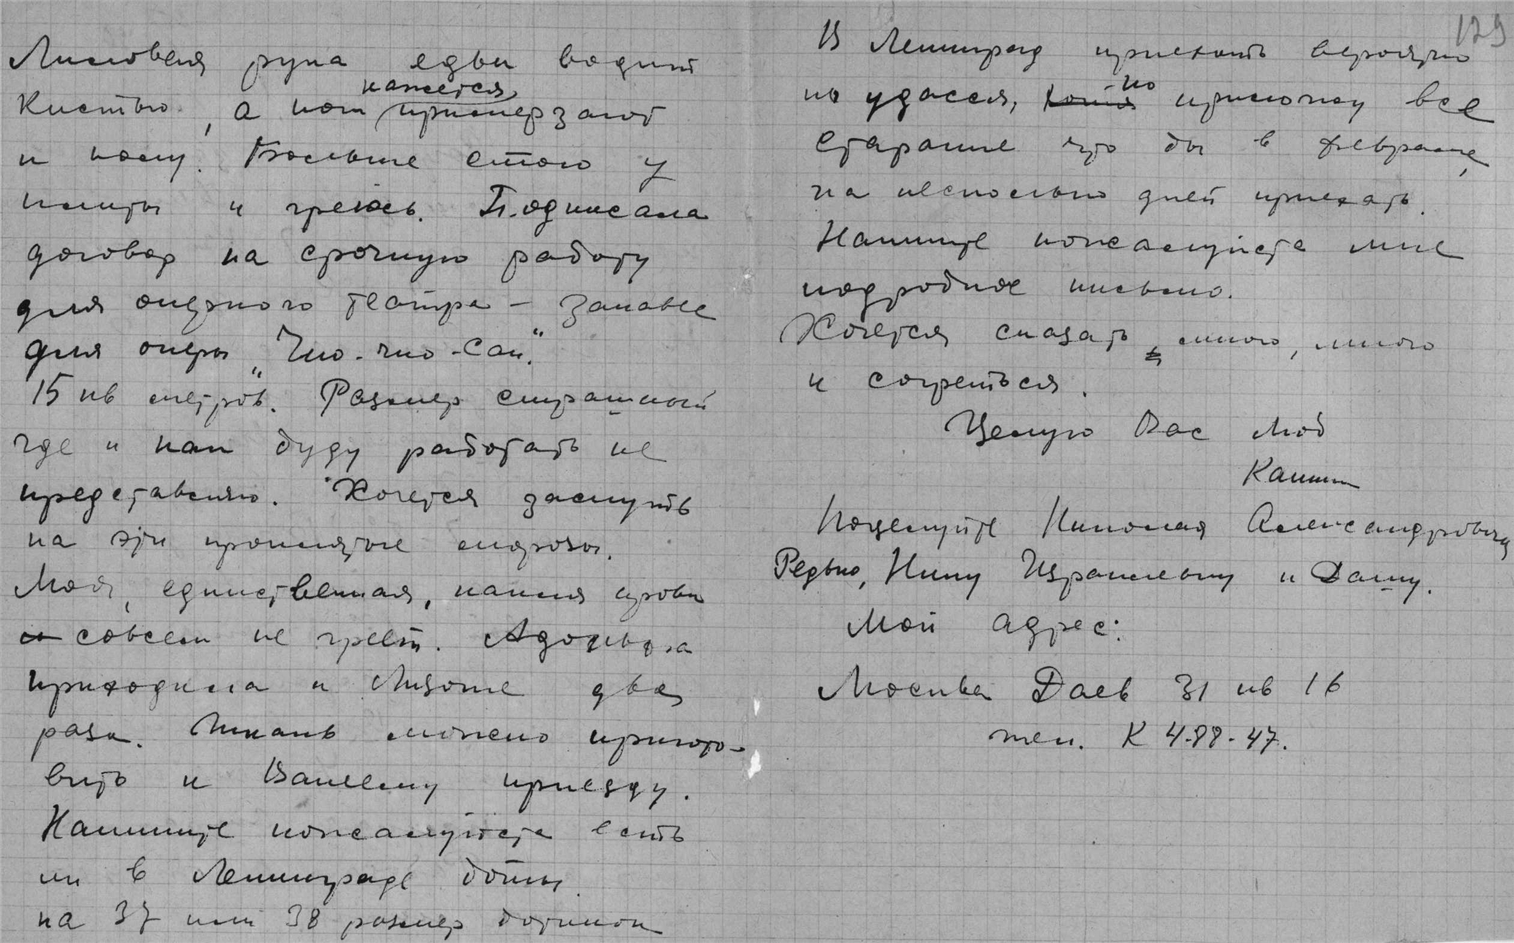 руки едва водит
Кистью, а кот кажется примерзает
к полу. Больше стою у
плиты и греюсь. Подписала
договор на срочную работу
для оперного театра – занавес
для оперы „Чио-чио-сан“.
15 кв метров. Размер страшный
где и как буду работать не
представляю. Хочется заснуть
на эти проклятые морозы.
Моя, единственная, капля крови
совсем не греет. Адольфа
приходила к Лизоше два
раза. Ткань можно пригото-
вить к Вашему приезду.
Напишите пожалуйста есть
ли в Ленинграде боты
на 37 или 38 размер ботинок
129
В Ленинград приехать вероятно
не удасся, но приложу все
старание что бы в феврале,
на несколько дней приехать.
Напишите пожалуйста мне
подробное письмо.
Хочется сказать много, много
и согреться.
Целую Вас
Поцелуйте Николая Александровича
Редько, Нину Израильевну и Дашу.
Мой адрес:
Москва Даев 31 кв 16
тел. К 4-88-47.